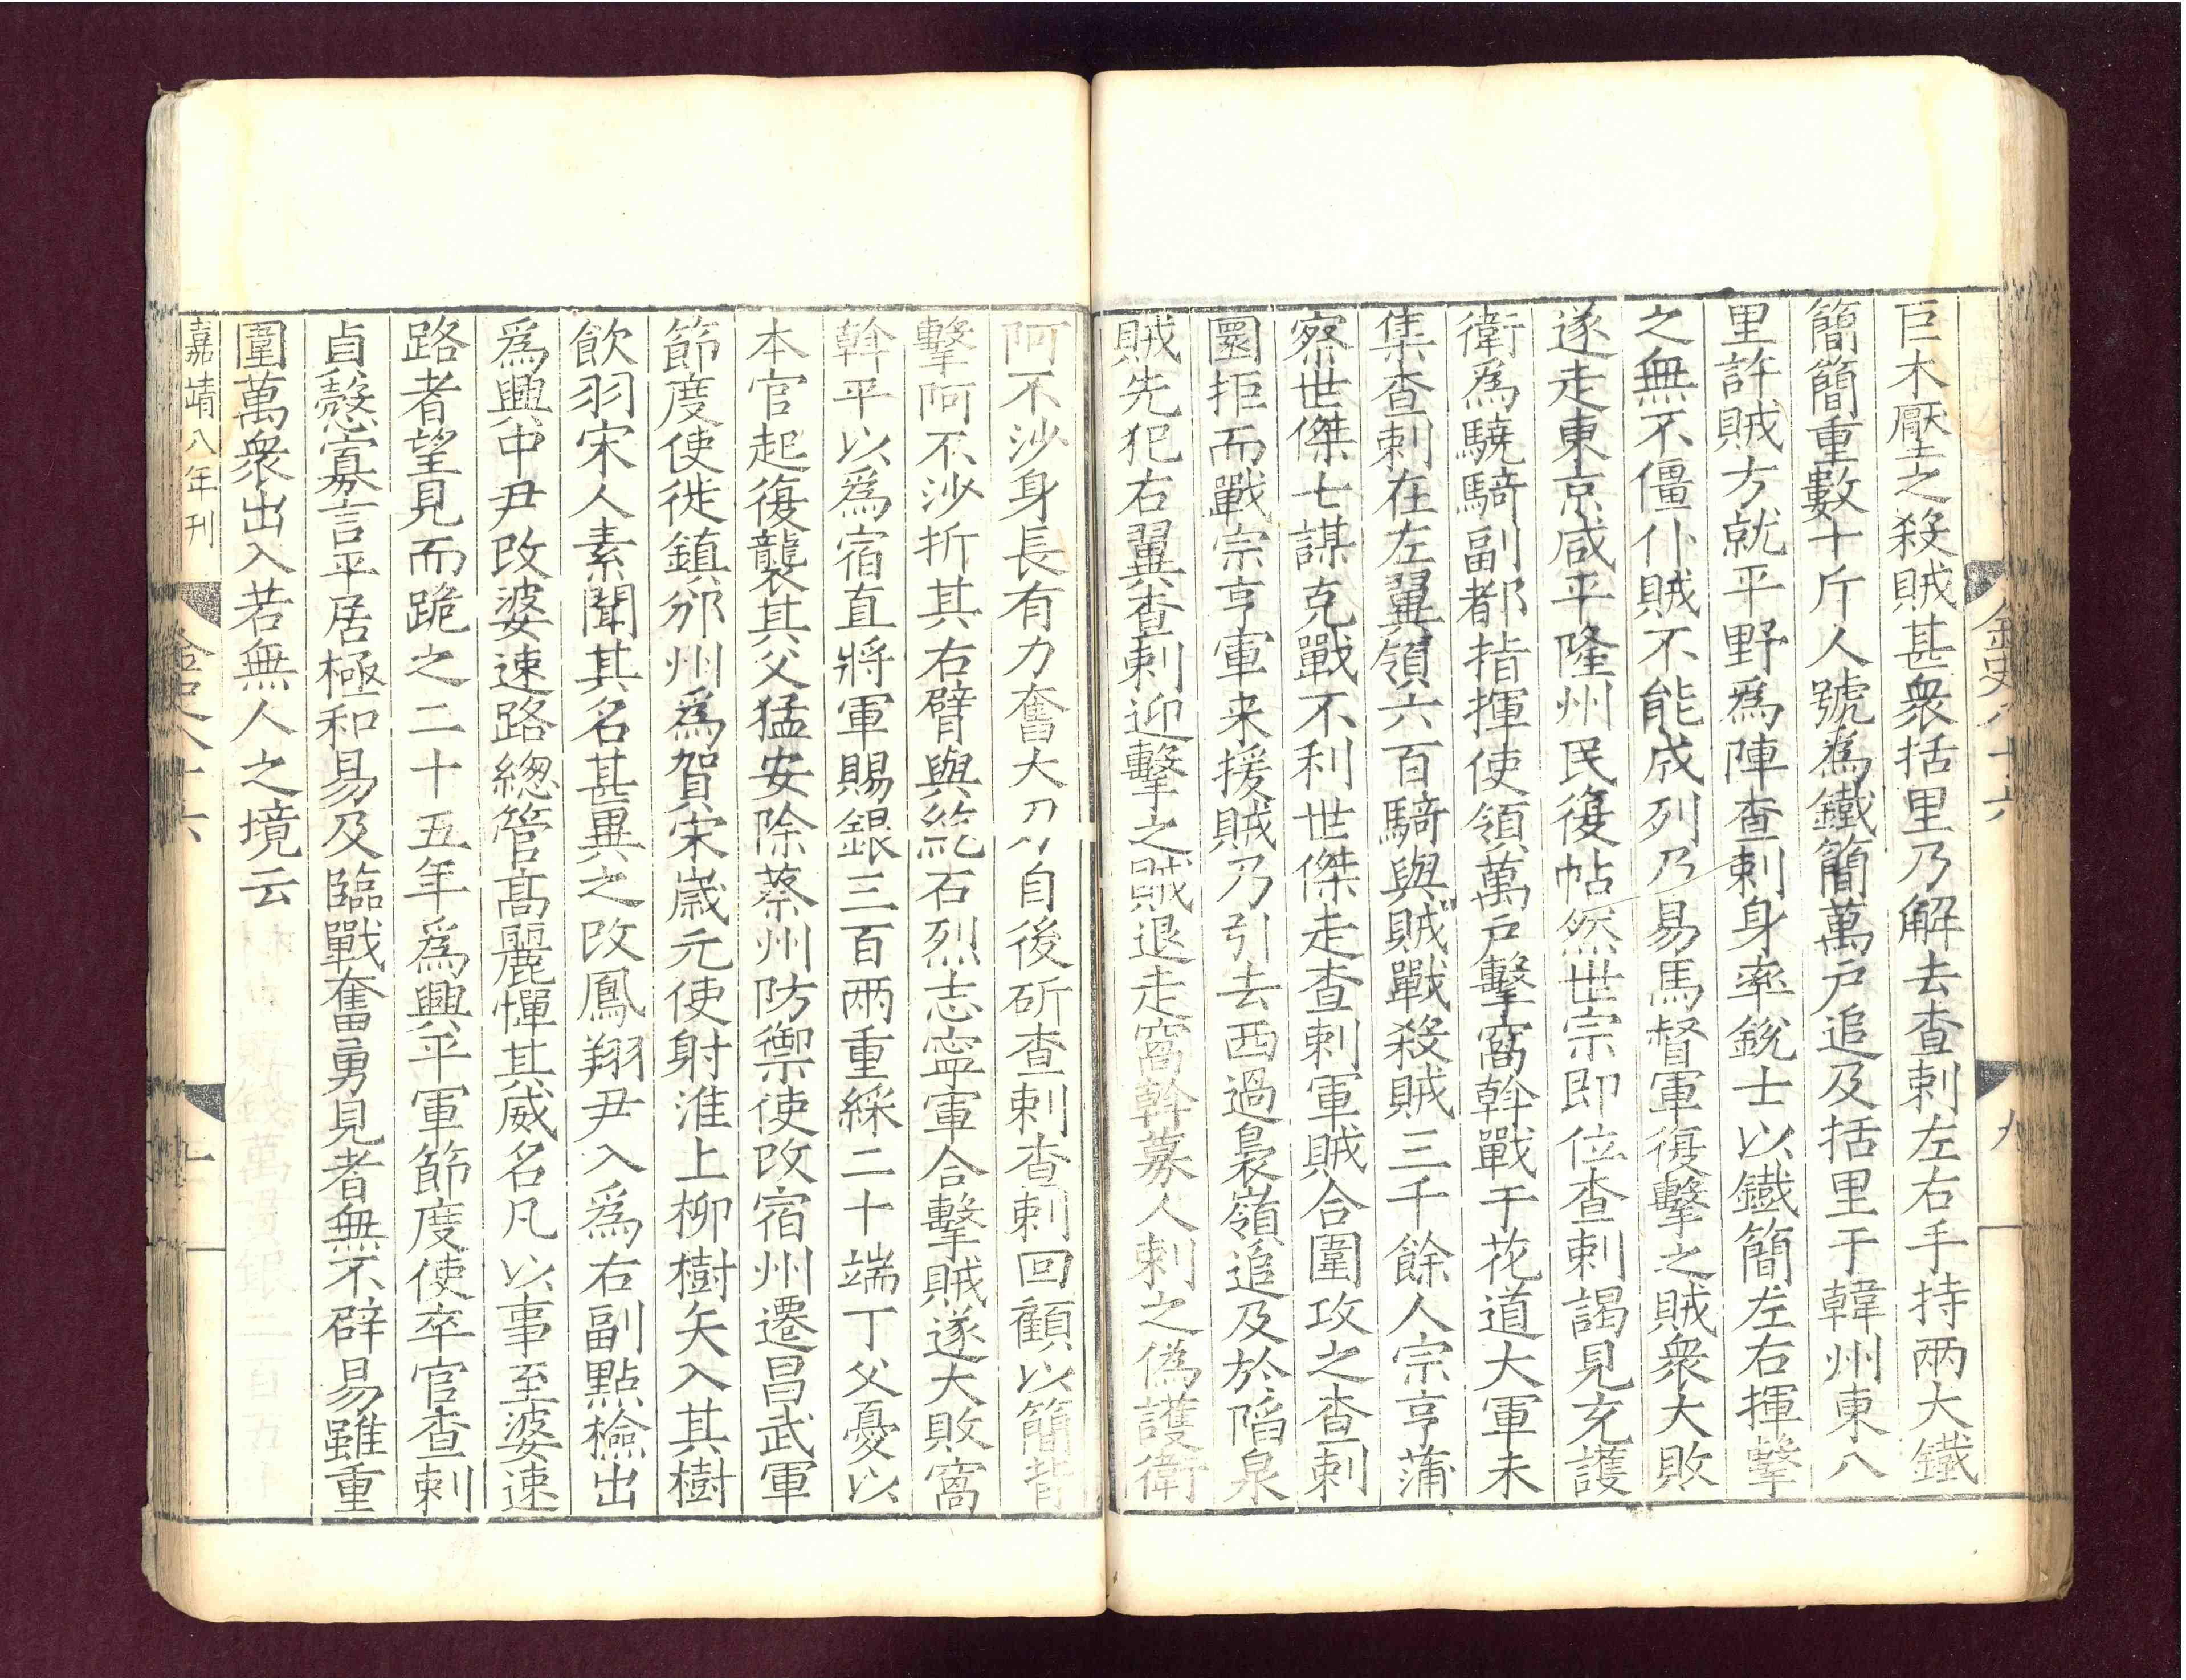 金史八十六
九
巨木壓之殺賊甚衆括里乃解去查剌左右手持兩大鐵
簡簡重數十斤人號爲鐵簡萬戶追及括里于韓州東八
里許賊方就平野爲陣查剌身率銳士以鐵簡左右揮擊
之無不僵仆賊不能成列乃易馬督軍復擊之賊衆大敗
遂走東京咸平隆州民復帖然世宗即位查剌謁見充護
衛爲驍騎副都指揮使領萬戶擊窩斡戰于花道大軍未
集查剌在左翼領六百騎與賊戰殺賊三千餘人宗亨蒲
察世傑七謀克戰不利世傑走查剌軍賊合圍攻之查剌
圜拒而戰宗亨軍来援賊乃引去西過裊嶺追及於陷泉
賊先犯右翼查剌迎擊之賊退走窩斡募人刺之僞護衛
阿不沙身長有力奮大刀自後斫查剌查剌回顧以簡背
擊阿不沙折其右臂與紇石烈志寧軍合擊賊遂大敗窩
斡平以爲宿直將軍賜銀三百兩重綵二十端丁父憂以
本官起復襲其父猛安除蔡州防禦使改宿州遷昌武軍
節度使徙鎮邠州爲賀宋歲元使射淮上柳樹矢入其樹
飲羽宋人素聞其名甚異之改鳳翔尹入爲右副點檢出
爲興中尹改婆速路緫管高麗憚其威名凡以事至婆速
路者望見而跪之二十五年爲興平軍節度使卒官查剌
貞慤寡言平居極和易及臨戰奮勇見者無不辟易雖重
圍萬衆出入若無人之境云
嘉靖八年刊
金史八十六